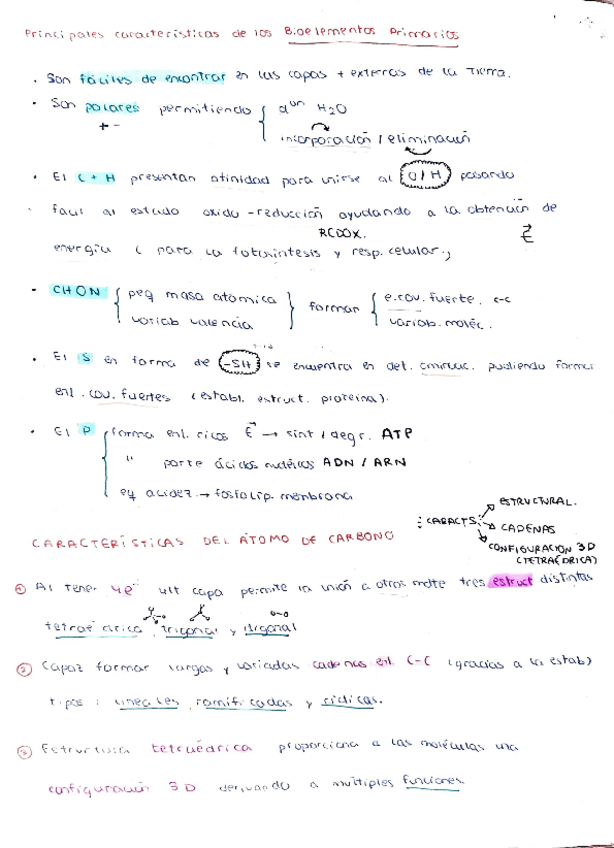 Principales características de los Bioelementos Primarios
· Son fáciles de encontrar en las capas + externas de la Tierra.
· Son polares permitiendo { dⁿ H₂O
+ - incorporación / eliminación
· El C + H presentan afinidad para unirse al O / H pasando
fácil al estado oxido - reducción ayudando a la obtención de
REDOX. E
energía ( para la fotosíntesis y resp. celular.)
· CHON { peq masa atómica } formar { e.cov. fuerte. C-C
variab valencia variab. moléc.
· El S en forma de -SH se encuentra en det. pudiendo formar
enl. cov. fuertes (establ. estruct. proteína).
· El P { forma enl. ricos E → sint / degr. ATP
" parte ácidos nucleicos ADN / ARN
eq acidez → fosfolip. membrana
CARACTERÍSTICAS DEL ÁTOMO DE CARBONO
: CARACTS.
ESTRUCTURAL.
CADENAS
CONFIGURACION 3D
(TETRAÉDRICA)
① Al tener 4e⁻ ult capa permite la unión a otros tres estruct distintas
tetraédrica, trigonal y digonal
② Capaz formar largas y variadas cadenas enl. C-C (gracias a la estab)
tipos: lineales, ramificadas y cíclicas.
③ Estructura tetraédrica proporciona a las moléculas una
configuración 3D derivando a múltiples funciones